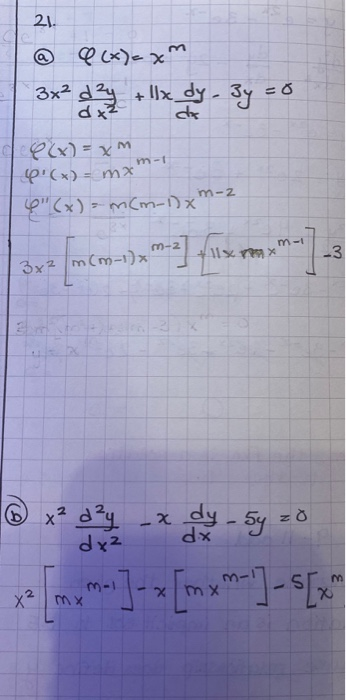 21.
ⓐ φ(x) = x^m
3x² d²y/dx² + 11x dy/dx - 3y = 0
φ(x) = x^m
φ'(x) = mx^(m-1)
φ''(x) = m(m-1)x^(m-2)
3x² [m(m-1)x^(m-2)] + [11x mx^(m-1)] - 3
ⓑ x² d²y/dx² - x dy/dx - 5y = 0
x² [mx^(m-1)] - x [mx^(m-1)] - 5[x^m